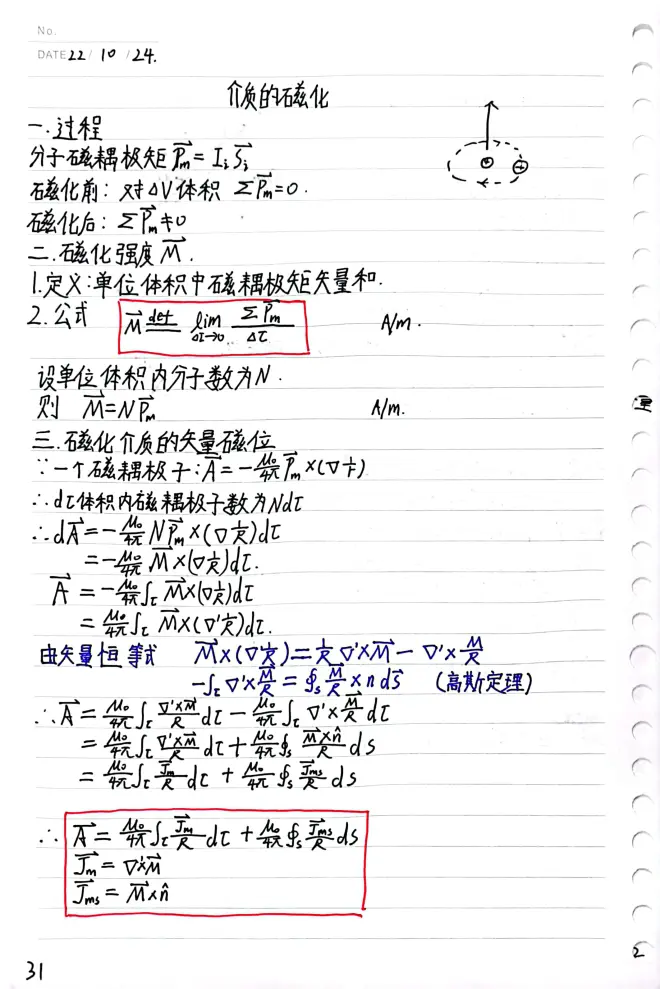 No.
DATE 22 / 10 / 24.
介质的磁化
一.过程
分子磁耦极矩 P⃗m = Iᵢ S⃗ᵢ
磁化前: 对ΔV体积 ΣP⃗m=0.
磁化后: ΣP⃗m≠0
二.磁化强度 M⃗.
1.定义:单位体积中磁耦极矩矢量和.
2.公式 M⃗ def lim Δτ→0 ΣP⃗m/Δτ A/m.
设单位体积内分子数为N.
则 M⃗=NP⃗m A/m.
三.磁化介质的矢量磁位
∵一个磁耦极子: A⃗=-μ₀/4π P⃗m×(∇ 1/r)
∴dτ体积内磁耦极子数为Ndτ
∴dA⃗=-μ₀/4π NP⃗m×(∇ 1/R)dτ
=-μ₀/4π M⃗×(∇ 1/R)dτ.
A⃗ =-μ₀/4π ∫τ M⃗×(∇ 1/R)dτ
=μ₀/4π ∫τ M⃗×(∇' 1/R)dτ.
由矢量恒等式 M⃗×(∇ 1/R)=1/R ∇'×M⃗ - ∇'× M⃗/R
-∫τ ∇'× M⃗/R = ∮s M⃗/R ×n dS⃗ (高斯定理)
∴A⃗ =μ₀/4π ∫τ ∇'×M⃗/R dτ - μ₀/4π ∫τ ∇'× M⃗/R dτ
=μ₀/4π ∫τ ∇'×M⃗/R dτ + μ₀/4π ∮s M⃗×n̂/R ds
=μ₀/4π ∫τ J⃗m/R dτ + μ₀/4π ∮s J⃗ms/R ds
∴ A⃗ =μ₀/4π ∫τ J⃗m/R dτ + μ₀/4π ∮s J⃗ms/R ds
J⃗m = ∇'×M⃗
J⃗ms = M⃗×n̂
31